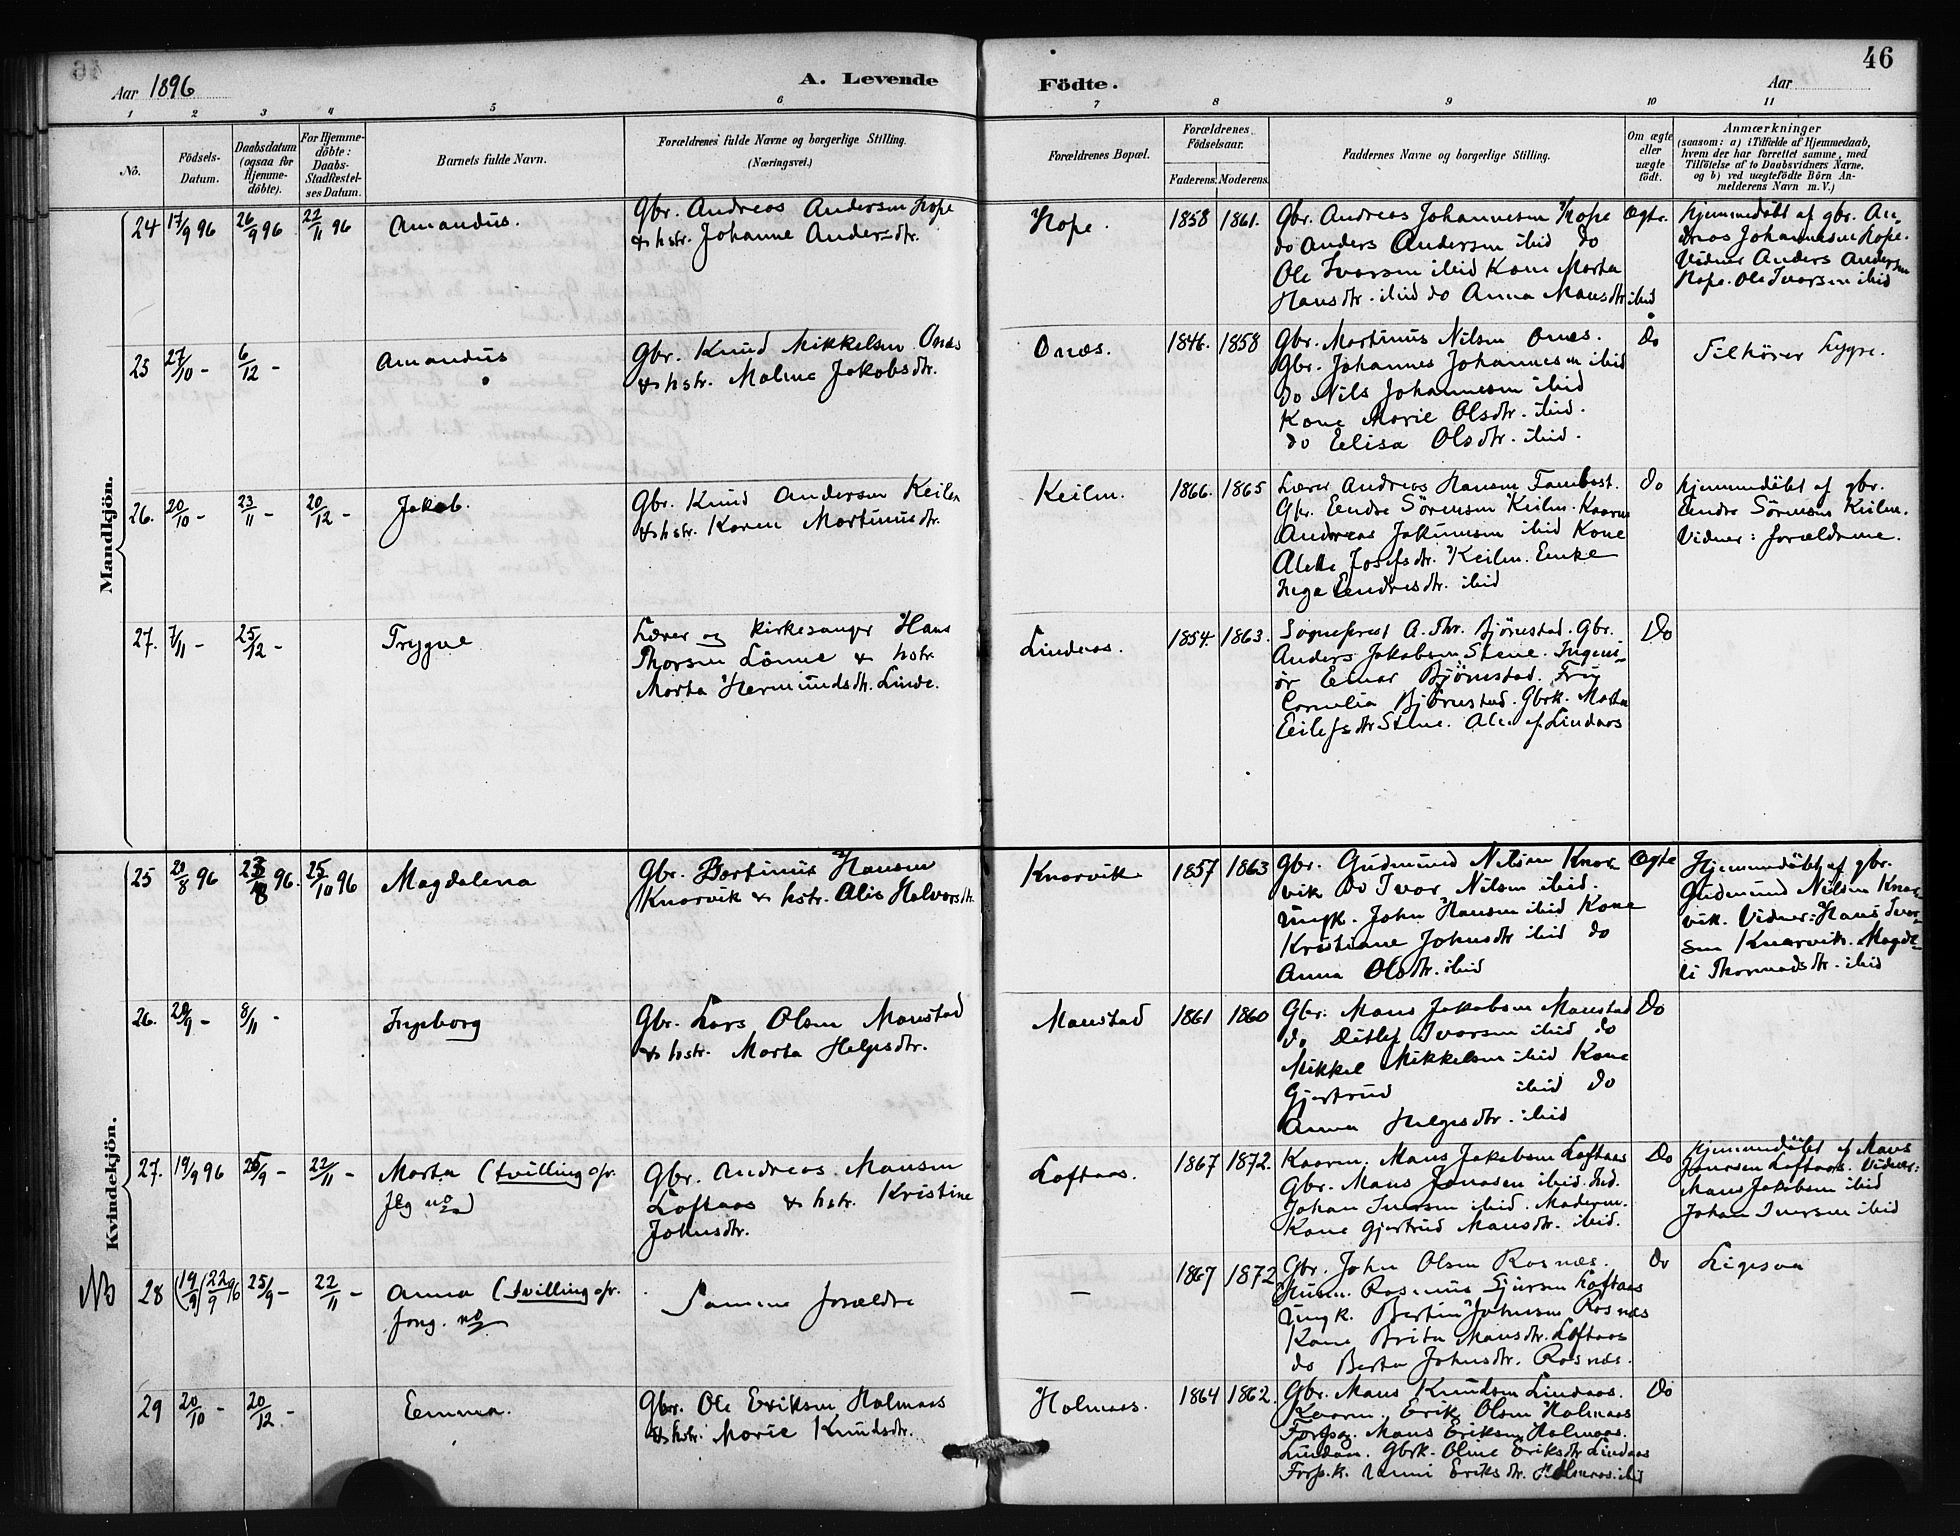 46
Aar 1896
A. Levende
Födte.
Aar
1 2 3 4 5 6 7 8 9 10 11
No.
Födsels-Datum.
Daabsdatum (ogsaa for Hjemme-döbte).
For Hjemme-döbte: Daabs-Stadfæstel-ses Datum.
Barnets fulde Navn.
Forældrenes fulde Navne og borgerlige Stilling.
(Næringsvei.)
Forældrenes Bopæl.
Forældrenes Födselsaar.
Faderens. Moderens.
Faddernes Navne og borgerlige Stilling.
Om ægte eller uægte født.
Anmærkninger
(saasom: a) i Tilfælde af Hjemmedaab,
hvem der har forrettet samme, med
Tilföielse af to Daabsvidners Navne,
og b) ved uægtefödte Börn An-
melderens Navn m. V.)
Mandkjön.
24 17/9 96 26/9 96 22/11 96 Amandus.
Gbr. Andreas Andersen Hope
& hstr. Johanne Andersdtr.
Hope. 1858 1861.
Gbr. Andreas Johannesen Hope
do Anders Andersen ibid do
Ole Ivarsen ibid Kone Marta
Hansdtr. ibid do Anna Mansdtr ibid
Ægte.
Hjemmedöbt af gbr. An-
dreas Johannesen Hope.
Vidner Anders Andersen
Hope. Ole Ivarsen ibid
25 27/10 - 6/12 - Amandus
Gbr. Knud Mikkelsen Onæs
& hstr. Malene Jakobsdtr.
Onæs. 1846. 1858
Gbr. Martinus Nilsen Onæs.
Gbr. Johannes Johannesen ibid
do Nils Johannesen ibid
Kone Marie Olsdtr. ibid.
do Elisa Olsdtr. ibid.
Do
Tilhörer Lygre.
26. 20/10 - 23/11 - 20/12 - Jakob.
Gbr. Knud Andersen Keilen
& hstr. Karen Martinusdtr.
Keilen. 1866. 1865
Lærer Andreas Hansen
Gbr. Endre Sörensen Keilen. Kaarm
Andreas Jakimesen ibid Kone
Alette Josefsdtr. Keilen. Enke
Inga Endresdtr. ibid
Do
Hjemmedöbt af gbr.
Endre Sörensen Keilen.
Vidner: forældrene.
27. 7/11 - 25/12 - Trygve
Lærer og kirkesanger Hans
Thorsen Lönne & hstr.
Marta Hermundsdtr. Linde.
Lindaas. 1854. 1863.
Sogneprest A. Thr. Björnstad. Gbr.
Anders Jakobsen Stene. Ingeni-
ör Einar Björnstad. Fru
Cornelia Björnstad. Gbrk. Marta
Eilefsdtr Stene. Alle af Lindaas
Do
Kvindekjön.
25 /8 96 96. 25/10 96 Magdalena
Gbr. Bertinus Hansen
Knarvik & hstr. Alis Halvorsdtr.
Knarvik 1857 1863
Gbr. Gudmund Nilsen Knar-
vik do Ivar Nilsen ibid.
Ungk. John Hansen ibid Kone
Kristiane Johnsdtr ibid do
Anna Olsdtr. ibid
Ægte
Hjemmedöbt af gbr.
Gudmund Nilsen Knar-
vik. Vidner: Hans Ivar-
sen Knarvik. Magde-
li Thormodsdtr. ibid
26. 20/9 - 8/11 - Ingeborg
Gbr. Lars Olsen Monstad
& hstr. Marta Helgesdtr.
Monstad 1861 1860
Gbr. Mans Jakobsen Monstad
do Ditlef Ivarsen ibid do
Mikkel Mikkelsen ibid Kone
Gjertrud ibid do
Anna Helgesdtr. ibid
Do
27. 19/9 96 25/9 - 22/11 - Marta (tvilling o/r.
flg no)
Gbr. Andreas Mansen
Loftaas & hstr. Kristine
Johnsdtr.
Loftaas. 1867 1872.
Kaarm. Mans Jakobsen Loftaas
Gbr. Mans Jonasen ibid. Ind.
Johan Iversen ibid. Maderm.
Kone Gjertrud Mansdtr. ibid.
Do
Hjemmedöbt af Mans
Jonasen Loftaas. Vidner:
Mans Jakobsen ibid
Johan Iversen ibid
No
28 (19/9) 22/9 96 25/9 - 22/11 - Anna (tvilling o/r.
forrg. no
Samme forældre
— 1867 1872
Gbr. John Olsen Rosnæs.
Husm. Rasmus Sjursen Loftaas
Ungk. Bertin Johnsen Rosnæs
Kone Brita Mansdtr. Loftaas
do Berta Johnsdtr. Rosnæs.
Do
Ligesaa
29 20/10 - 20/12 - Emma.
Gbr. Ole Eriksen Holmaas
& hstr. Marie Knudsdtr.
Holmaas. 1864 1862.
Gbr. Mans Knudsen Lindaas.
Kaarm. Erik Olsen Holmaas
Mans Eriksen Holmaas.
Lindaas. Gbrk. Oline Eriksdtr Lindaas
Eriksdtr. Holmaas. ibid
Do